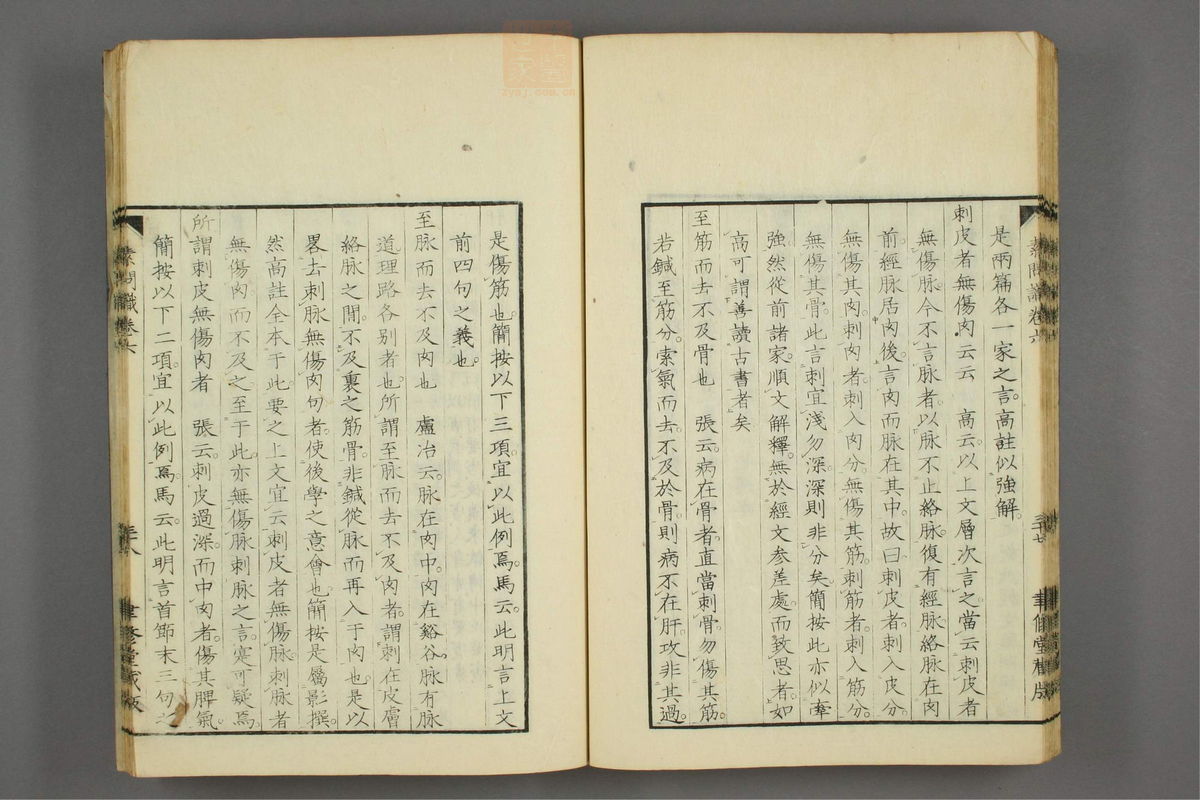 是兩篇各一家之言。高註似強解。
刺皮者無傷肉云云　高云。以上文層次言之。當云刺皮者
無傷脉。今不言脉者。以脉不止絡脉。復有經脉。絡脉在肉
前。經脉居肉後。言肉而脉在其中。故曰刺皮者。刺入皮分。
無傷其肉。刺肉者。刺入肉分。無傷其筋。刺筋者。刺入筋分。
無傷其骨。此言刺宜淺勿深。深則非分矣。簡按此亦似牽
強。然從前諸家。順文解釋。無於經文參差處。而致思者。如
高可謂善讀古書者矣
至筋而去不及骨也　張云。病在骨者。直當刺骨。勿傷其筋。
若鍼至筋分。索氣而去。不及於骨。則病不在肝。攻非其過。
素問識卷六
三十七
聿修堂藏版
是傷筋也。簡按以下三項。宜以此例焉。馬云。此明言上文
前四句之義也。
至脉而去不及肉也　盧冶云。脉在肉中。肉在谿谷。脉有脉
道理路。各別者也。所謂至脉而去。不及肉者。謂刺在皮膚
絡脉之間。不及裏之筋骨。非鍼從脉而再入于肉也。是以
畧去刺脉無傷肉句者。使後學之意會也。簡按是屬影撰。
然高註全本于此。要之上文宜云刺皮者無傷脉。刺脉者
無傷肉。而不及之。至于此。亦無傷脉刺脉之言。寔可疑焉
所謂刺皮無傷肉者　張云。刺皮過深。而中肉者。傷其脾氣。
簡按以下二項。宜以此例焉。馬云。此明言首節末三句之
素問識卷六
三十八
聿修堂藏版